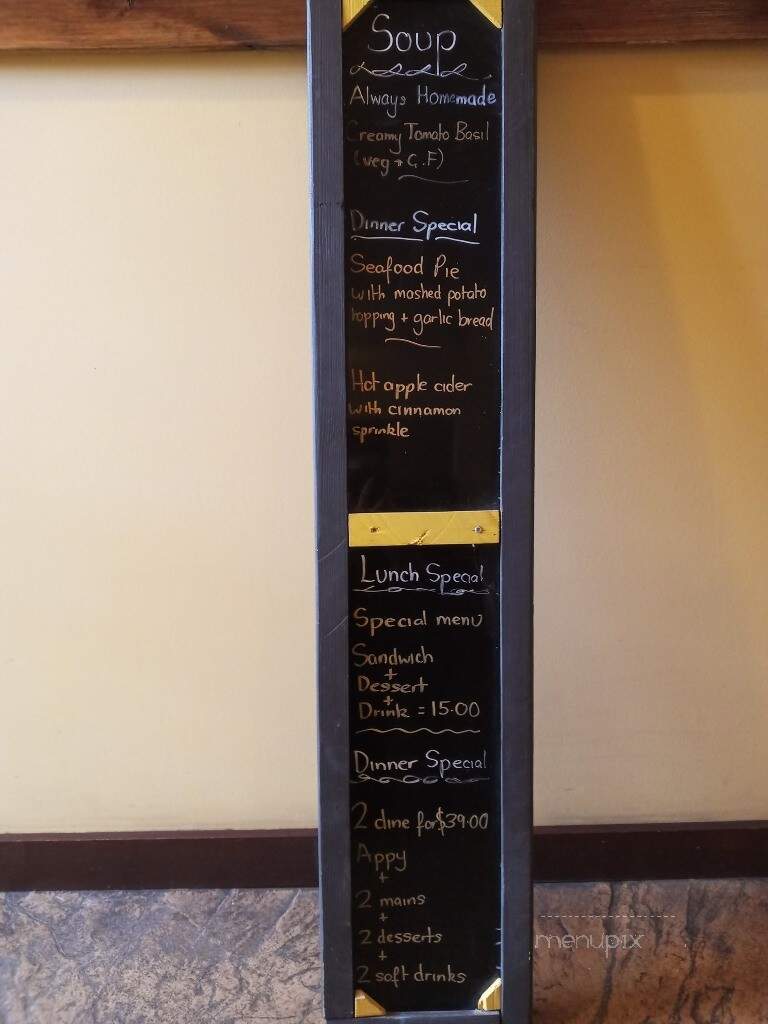 Soup
Always Homemade
Creamy Tomato Basil
(veg + G.F)
Dinner Special
Seafood Pie
with mashed potato
topping + garlic bread
Hot apple cider
with cinnamon
sprinkle
Lunch Special
Special menu
Sandwich
+
Dessert
+
Drink = 15.00
Dinner Special
2 dine for $39.00
Appy
+
2 mains
+
2 desserts
+
2 soft drinks
menupix